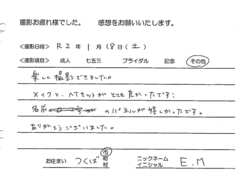 撮影お疲れ様でした。 感想をお願いいたします。
<撮影日時> R2年 1月 18日(土)
<撮影項目> 成人 七五三 ブライダル 記念 その他
楽しく撮影できました。
メイクと、ヘアセットがとても良かったです!
名前の パネルが嬉しかったです。
ありがとうございました。
お住まい つくば 市 町 村 ニックネーム イニシャル E.M